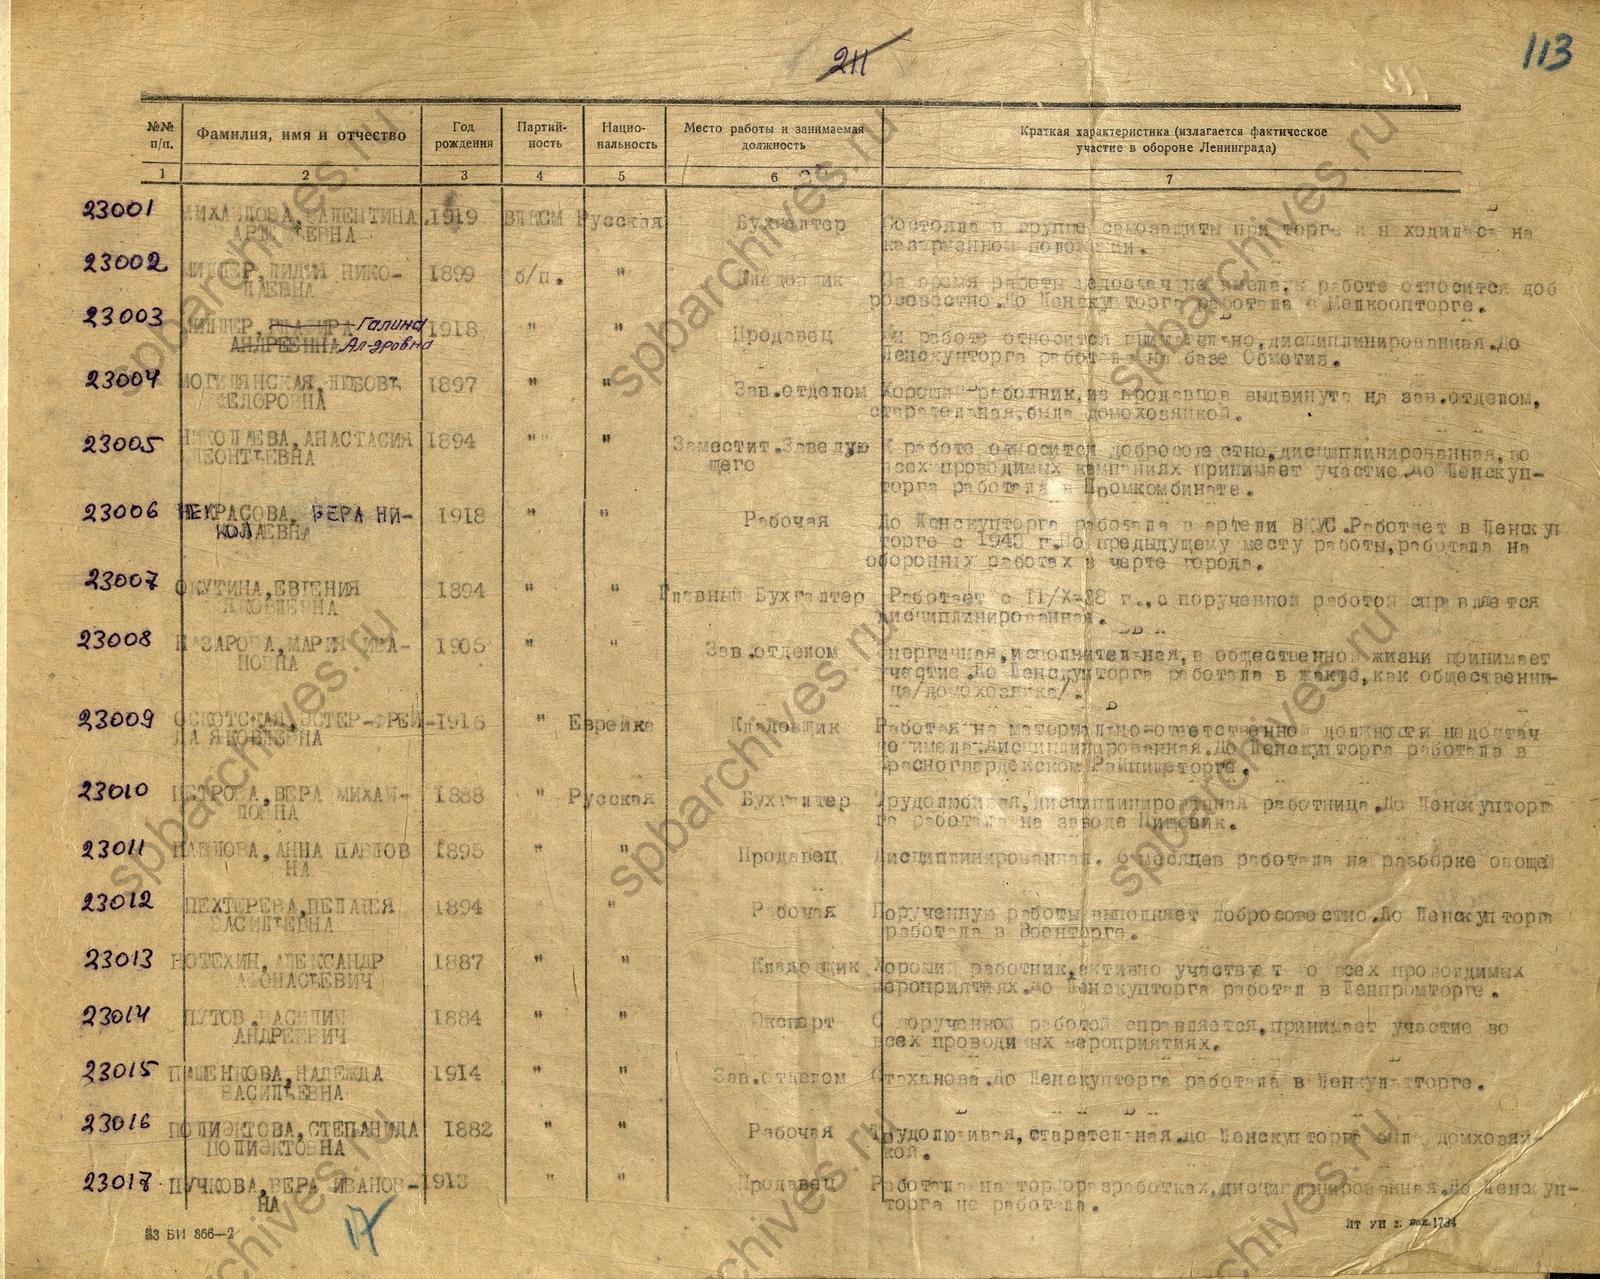 211
113
№№ п/п.
Фамилия, имя и отчество
Год рождения
Партий-ность
Нацио-нальность
Место работы и занимаемая должность
Краткая характеристика (излагается фактическое участие в обороне Ленинграда)
1 2 3 4 5 6 7
23001 МИХАЙЛОВА, ВАЛЕНТИНА 1919 ВЛКСМ Русская Бухгалтер Состояла в группе самозащиты при торге и находилась на
АРТЕМЬЕВНА казарменном положении.
23002 МИЛЛЕР, ЛИДИЯ НИКО- 1899 б/п. " Кладовщик За время работы недостач не имела, к работе относится доб
ЛАЕВНА росовестно. До Ленскупторга работала в Мелкоопторге.
23003 МИЛЛЕР, Галина 1918 " " Продавец К работе относится внимательно, дисциплинированная. До
АНДРЕЕВНА Ал-дровна Ленскупторга работала на базе
23004 МОГИЛЯНСКАЯ, ЛЮБОВЬ 1897 " " Зав.отделом Хороший работник, из продавцов выдвинута на зав.отделом,
ФЕДОРОВНА старательная, была домохозяйкой.
23005 НИКОЛАЕВА, АНАСТАСИЯ 1894 " " Заместит.Заведую К работе относится добросовестно, дисциплинированная, во
ЛЕОНТЬЕВНА щего всех проводимых кампаниях принимает участие. До Ленскуп-
торга работала в Промкомбинате.
23006 НЕКРАСОВА, ВЕРА НИ- 1918 " " Рабочая До Ленскупторга работала в артели ВКУС. Работает в Ленскуп
КОЛАЕВНА торге с 1943 г. По предыдущему месту работы, работала на
оборонных работах в черте города.
23007 ОКУТИНА, ЕВГЕНИЯ 1894 " " Главный Бухгалтер Работает с 11/X-38 г., с порученной работой справляется
ЯКОВЛЕВНА дисциплинированная.
23008 НАЗАРОВА, МАРИЯ ИВА- 1905 " " Зав.отделом Энергичная, исполнительная, в общественной жизни принимает
НОВНА участие. До Ленскупторга работала в жакте, как общественни-
ца/домохозяйка/.
23009 ОСКОТСКАЯ, ЭСТЕР-ФРЕЙ- 1916 " Еврейка Кладовщик Работая на материально-ответственной должности недостач
ДА ЯКОВЛЕВНА не имела. Дисциплинированная. До Ленскупторга работала в
Красногвардейском Райпищеторге.
23010 ПЕТРОВА, ВЕРА МИХАЙ- 1888 " Русская Бухгалтер Трудолюбивая, дисциплинированная работница. До Ленскупторг
ЛОВНА га работала на заводе Пищевик.
23011 ПАВЛОВА, АННА ПАВЛОВ 1895 " " Продавец Дисциплинированная. 6 месяцев работала на разборке овощей
НА
23012 ПЕХТЕРЕВА, ПЕЛАГЕЯ 1894 " " Рабочая Порученную работы выполняет добросовестно. До Ленскупторга
ВАСИЛЬЕВНА работала в Военторге.
23013 ПОТЕХИН, АЛЕКСАНДР 1887 " " Кладовщик Хороший работник, активно участвует во всех проводимых
АФОНАСЬЕВИЧ мероприятиях. До Ленскупторга работал в Ленпромторге.
23014 ПУТОВ, ВАСИЛИЙ 1884 " " Эксперт С порученной работой справляется, принимает участие во
АНДРЕЕВИЧ всех проводимых мероприятиях.
23015 ПАШЕНКОВА, НАДЕЖДА 1914 " " Зав.отделом Стаханова. До Ленскупторга работала в
ВАСИЛЬЕВНА
23016 ПОЛИЭКТОВА, СТЕПАНИДА 1882 " " Рабочая Трудолюбивая, старательная. До Ленскупторга была домхозяй-
ПОЛИЭКТОВНА кой.
23017 ПУЧКОВА, ВЕРА ИВАНОВ- 1913 " " Продавец Работала на торфоразработках, дисциплинированная. До Ленскуп-
НА торга не работала.
17
ВЗ БИ 866—2
ЛТ УИ 2. зак. 1734
spbarchives.ru